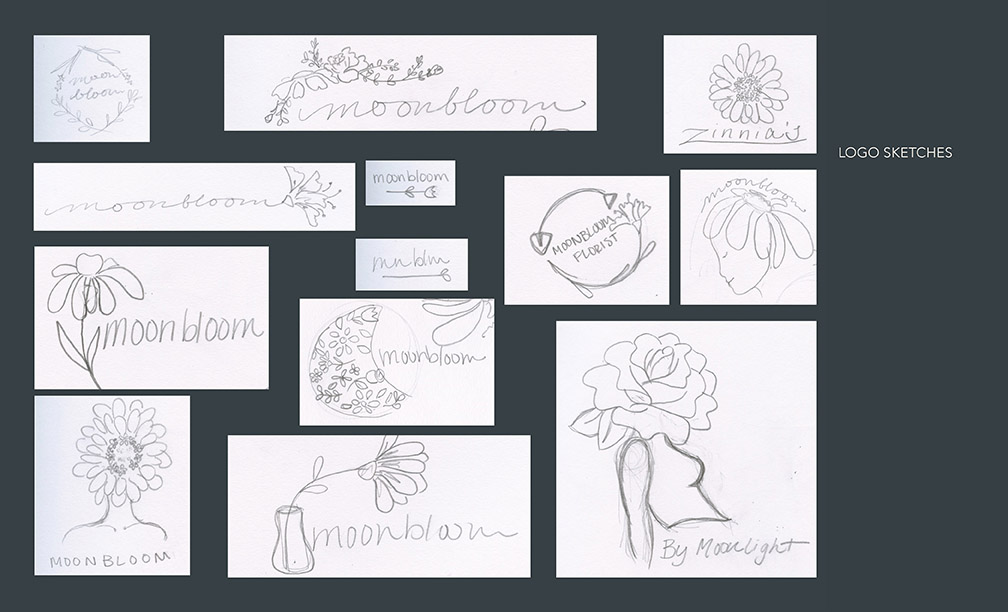 moon
bloom
moonbloom
zinnia's
LOGO SKETCHES
moonbloom
moonbloom
MOONBLOOM
FLORIST
moonbloom
mnblm
moonbloom
moonbloom
MOONBLOOM
moonbloom
By Moonlight